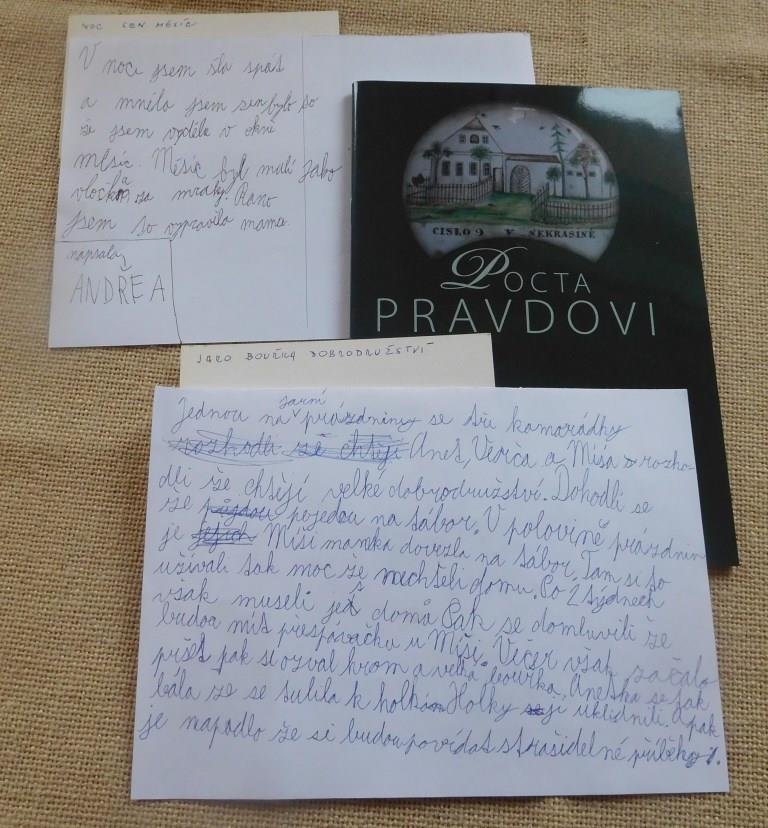 NOC SEN MĚSÍC
V noci jsem šla spát
a mněla jsem sen bylo to
že jsem vyděla v okně
měsíc. Měsíc byl malí jako
vločka za mraky. Rano
jsem to vypravila mamce.
napsala
ANDŘEA
ČISLO 9 V NEKRASINĚ
POCTA
PRAVDOVI
JARO BOUŘKA DOBRODRUŽSTVÍ
Jednou na jarní prázdniny se tři kamarádky
rozhodli že chtějí Anet, Verča a Míša rozho-
dli že chtějí velké dobrodružství. Dohodli se
že půjdou pojedou na tábor. V polovině prázdnin
je jejich Míši mamka dovezla na tábor. Tam si to
užívali tak moc že nechtěli domu. Po 2 týdnech
však museli jet domů Pak se domluvili že
budou mít přespávačku u Míši. Večer však začalo
pršet pak si ozval hrom a velká bouřka. Aneška se tak
bála že se tulila k holkám Holky ji uklidnili. a pak
je napadlo že si budou povídat strašidelné příběhy.